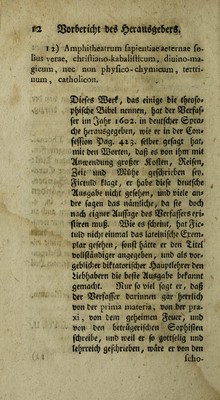 12 Vorbericht des Herausgebers.
12) Amphitheatrum sapientiae aeternae so-
lius verae, christiano-kabalisticum, divino-ma-
gicum, nec non physico-chymicum, tertri-
num, catholicon.
Dieses Werk, das einige die theoso-
phische Bibel nennen, hat der Verfas-
ser im Jahr 1602. in deutscher Spra-
che herausgegeben, wie er in der Con-
fession Pag. 423. selbst gesagt hat,
mit den Worten, daß es von ihm mit
Anwendung großer Kosten, Reisen,
Zeit und Mühe geschrieben sey.
Fictuld klagt, er habe diese deutsche
Ausgabe nicht gesehen, und viele an-
dre sagen das nämliche, da sie doch
nach eigner Aussage des Verfassers exi-
stiren muß. Wie es scheint, hat Fic-
tuld nicht einmal das lateinische Exem-
plar gesehen, sonst hätte er den Titel
vollständiger angegeben, und als vor-
geblicher diktatorischer Hauptlehrer den
Liebhabern die beste Ausgabe bekannt
gemacht. Nur so viel sagt er, daß
der Verfasser darinnen gar herrlich
von der prima materia, von der pra-
xi, von dem geheimen Feuer, und
von den betrügerischen Sophisten
schreibe, und weil er so gottselig und
lehrreich geschrieben, wäre er von den
scho-